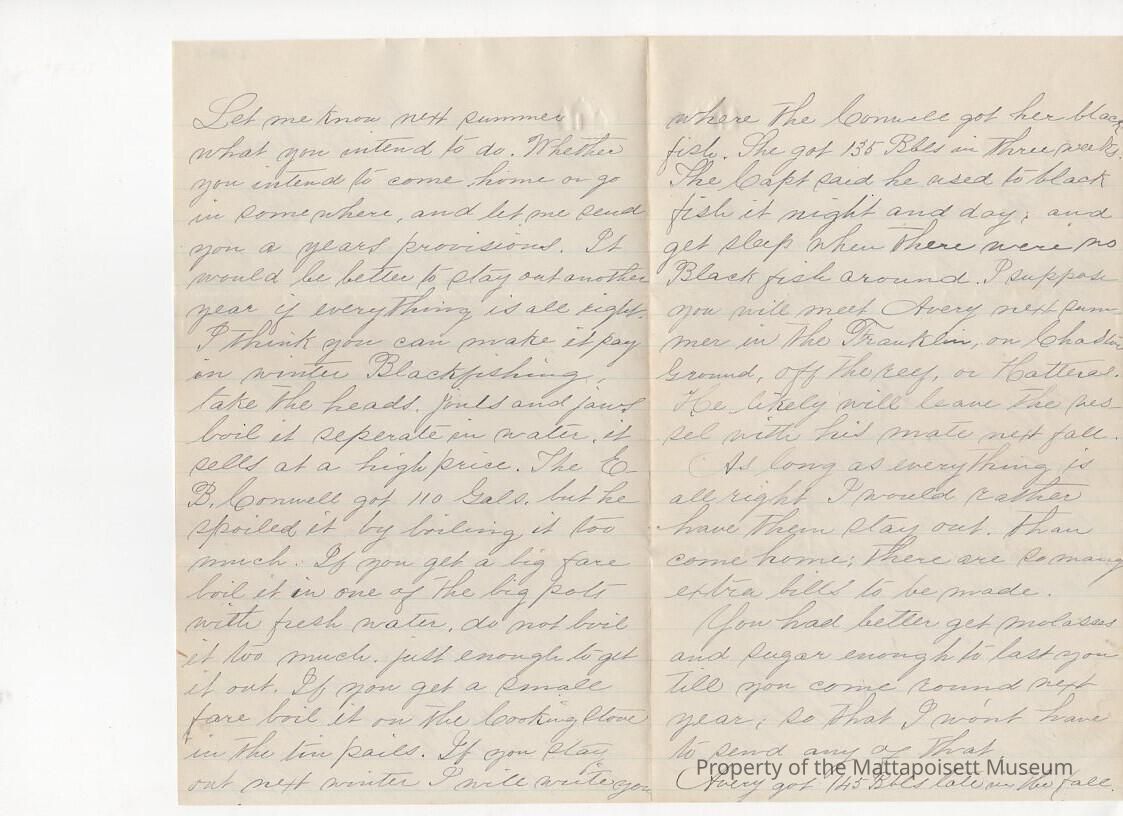 Let me know next summer
what you intend to do. Whether
you intend to come home or go
in somewhere, and let me send
you a years provisions. It
would be better to stay out another
year if everything is all right.
I think you can make it pay
in winter Blackfishing,
take the heads. jouls and jaws
boil it seperate in water. it
sells at a high price. The E
B. Conwell got 110 Gals. but he
spoiled it by boiling it too
much. If you get a big fare
boil it in one of the big pots
with fresh water. do not boil
it too much. just enough to get
it out. If you get a small
fare boil it on the Cooking Stove
in the tin pails. If you stay
out next winter I will write you
where the Conwell got her black
fish. She got 135 Bbls in three weeks.
The Capt said he used to black
fish it night and day; and
get sleep when there were no
Black fish around. I suppose
you will meet Avery next sum
mer in the Franklin, on
Ground, off the reef, or Hatteras.
He likely will leave the ves-
sel with his mate next fall.
As long as everything is
all right I would rather
have them stay out. than
come home; there are so many
extra bills to be made.
You had better get molasses
and sugar enough to last you
till you come round next
year; so that I wont have
to send any of that
Avery got 145 Bbls late in the fall.
Property of the Mattapoisett Museum